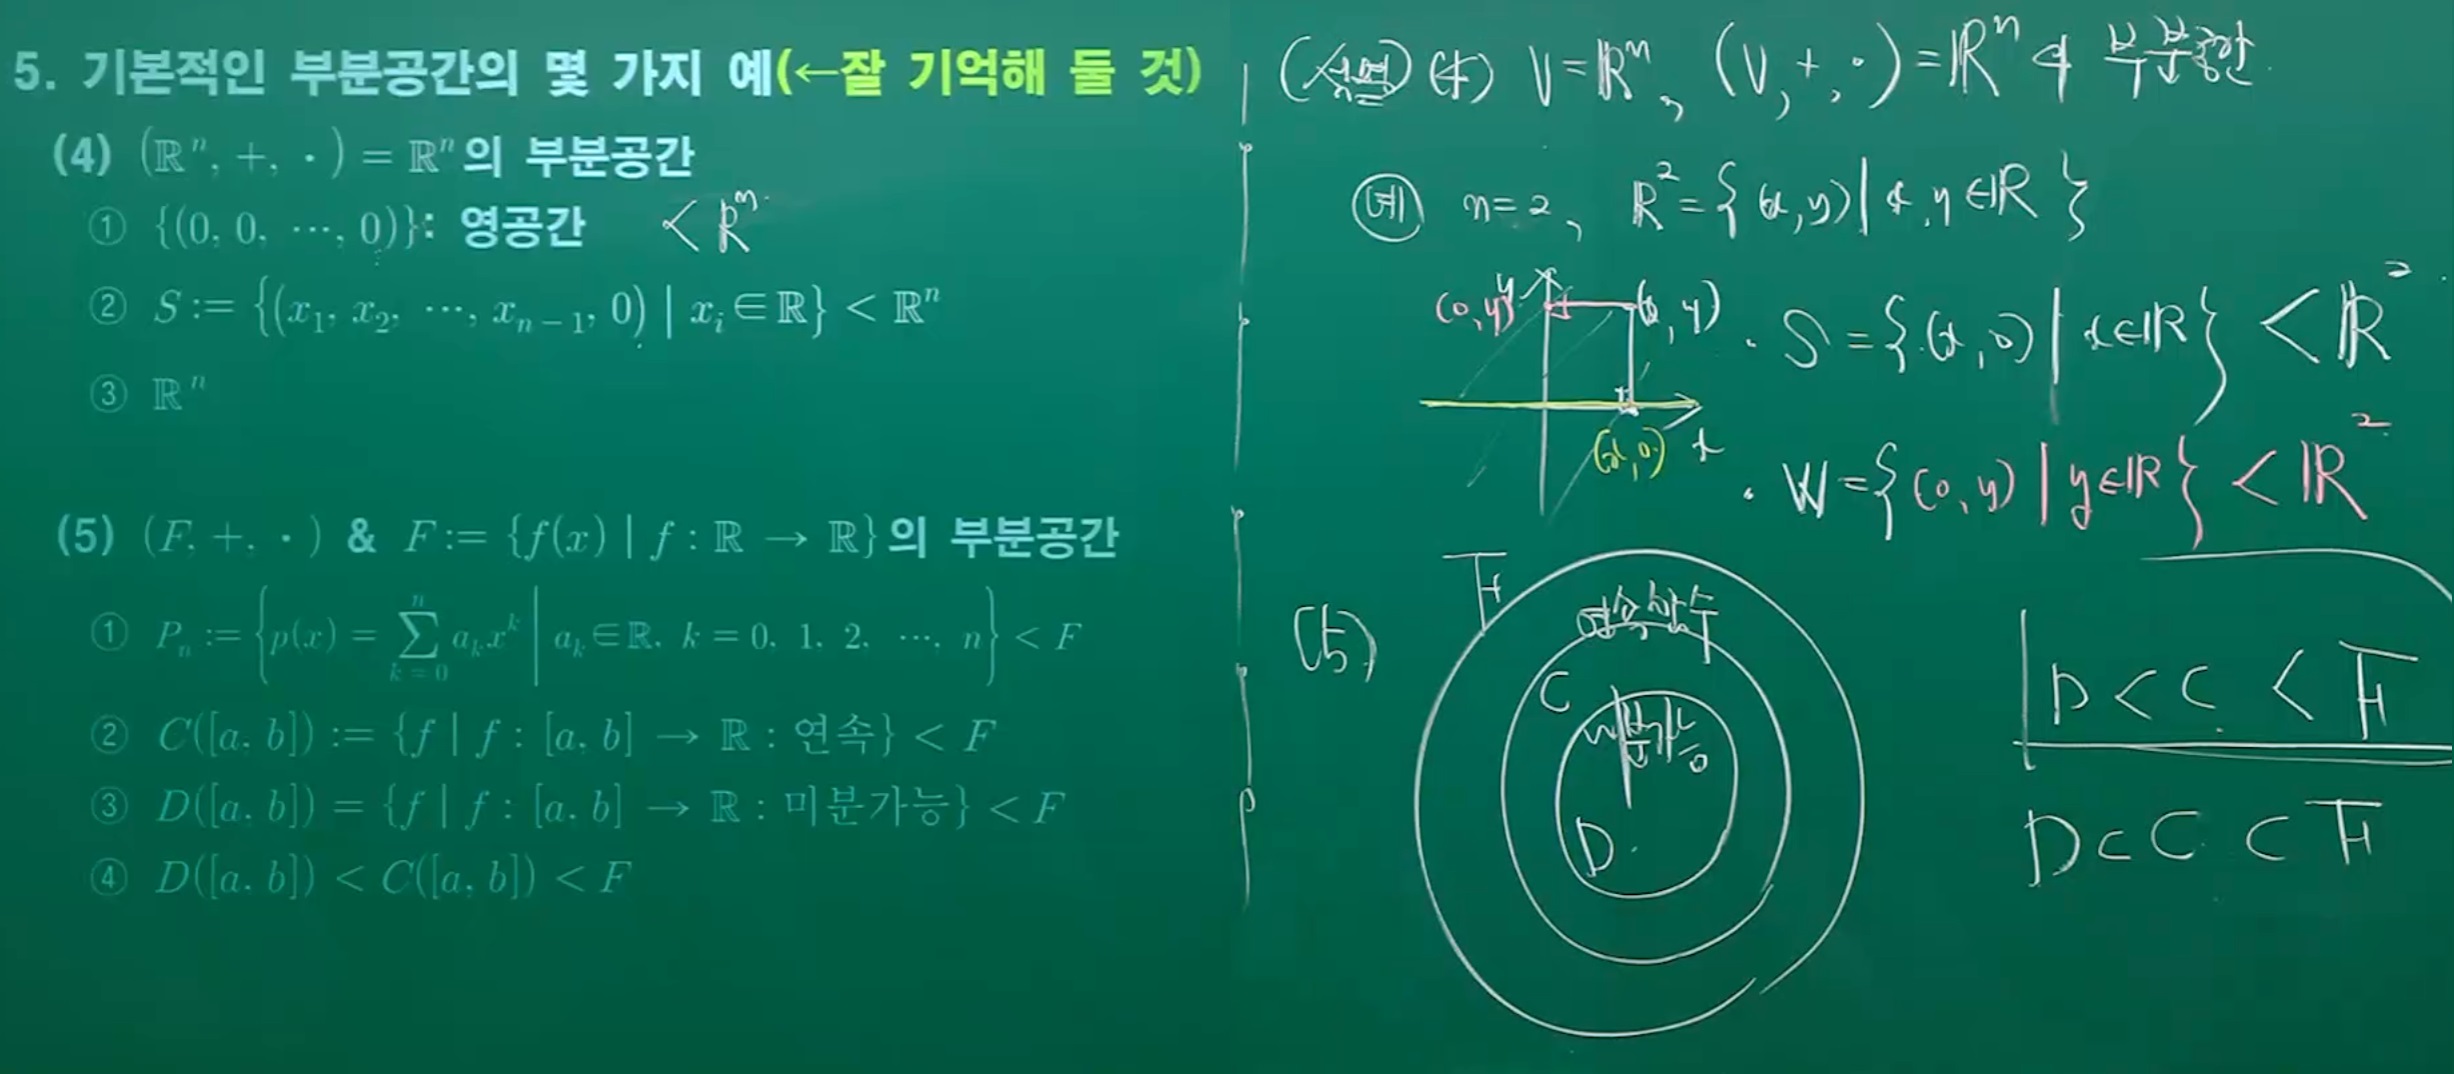 5. 기본적인 부분공간의 몇 가지 예(←잘 기억해 둘 것)
(4) (ℝⁿ, +, ·) = ℝⁿ의 부분공간
① {(0, 0, ⋯, 0)}: 영공간 < ℝⁿ
② S := {(x₁, x₂, ⋯, xₙ₋₁, 0) | xᵢ∈ℝ} < ℝⁿ
③ ℝⁿ
(5) (F, +, ·) & F := {f(x) | f : ℝ → ℝ}의 부분공간
① Pₙ := {p(x) = ∑ₖ₌₀ⁿ aₖxᵏ | aₖ∈ℝ, k = 0, 1, 2, ⋯, n} < F
② C([a, b]) := {f | f : [a, b] → ℝ : 연속} < F
③ D([a, b]) = {f | f : [a, b] → ℝ : 미분가능} < F
④ D([a, b]) < C([a, b]) < F
(설명) (4) V=ℝⁿ, (V, +, ·)=ℝⁿ의 부분공간
예 n=2, ℝ²={(x,y) | x,y∈ℝ}
y
(0,y) (x,y)
(x,0) x
· S={(x,0) | x∈ℝ} < ℝ²
· W={(0,y) | y∈ℝ} < ℝ²
(5)
F
연속함수
C
미분가능
D
D < C < F
D ⊂ C ⊂ F